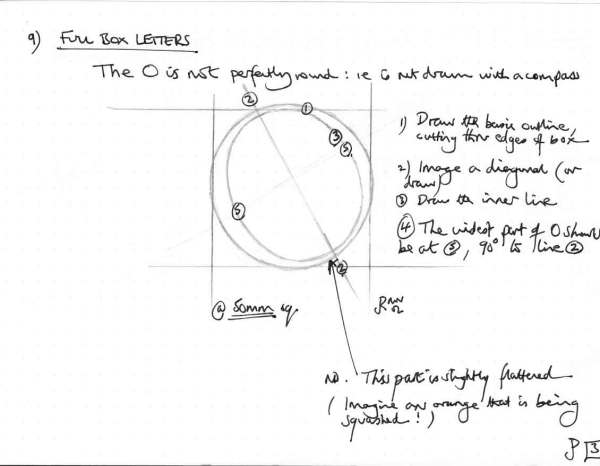 9) FULL BOX LETTERS
The O is not perfectly round : ie is not drawn with a compass
② ①
③
⑤
⑤
②
1) Draw the basic outline,
cutting thru edges of box
2) Image a diagonal (or
draw)
③ Draw the inner line
④ The widest part of O should
be at ⑤, 90° to line ②
@ 50mm sq.
This part is slightly flattered
( Imagine an orange that is being
squashed ! )
P 3